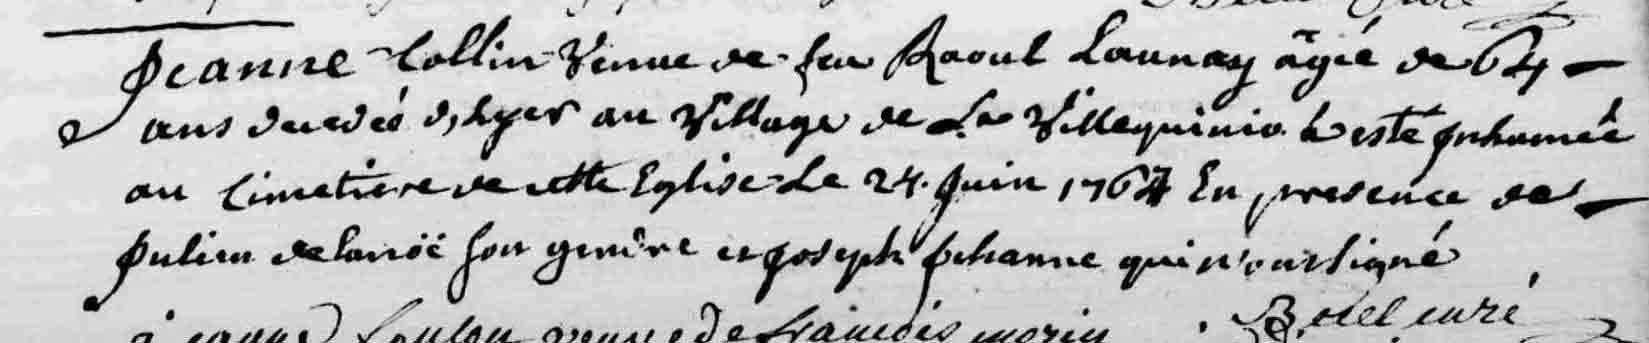 Jeanne Collin Veuve de feu Raoul Launay âgée de 64
ans decedeé d'hyer au Village de La Villequinio à esté jnhumée
au Cimetiere de cette Eglise Le 24. Juin 1764 En presence de
Julien delanoë son gendre et joseph jehanne qui n'ont signé
Botel curé
jeanne Loulou veuve de francois morin